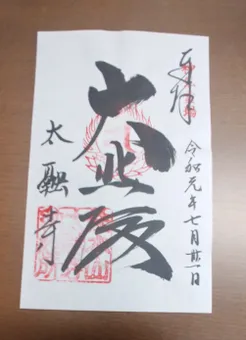 奉拝
令和元年七月廿一日
大悲殿
太融寺